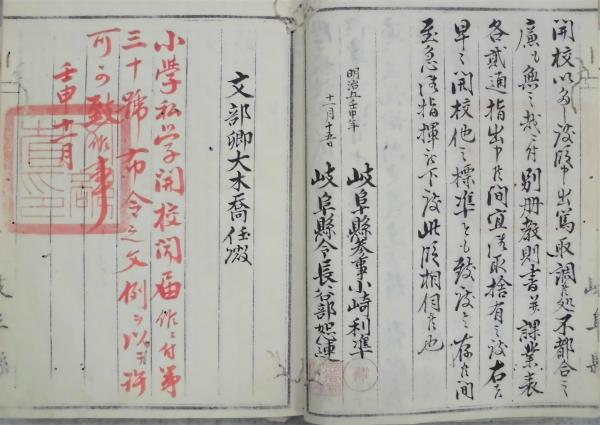 開校以多し度段申出篤取調候処不都合之
廉も無之哉ニ付別冊教則書并課業表
各貳通指出申候間宜御取捨有之度右者
早々開校他之標準とも致度ト存候間
至急御指揮被下度此段相伺候也
明治五壬申年
十一月十五日
岐阜縣参事小崎利準
岐阜縣令長谷部恕連
文部卿大木喬任殿
小學私学開校聞届候ニ付第
三十號布令之文例ヲ以テ許
可可致候事
壬申十一月